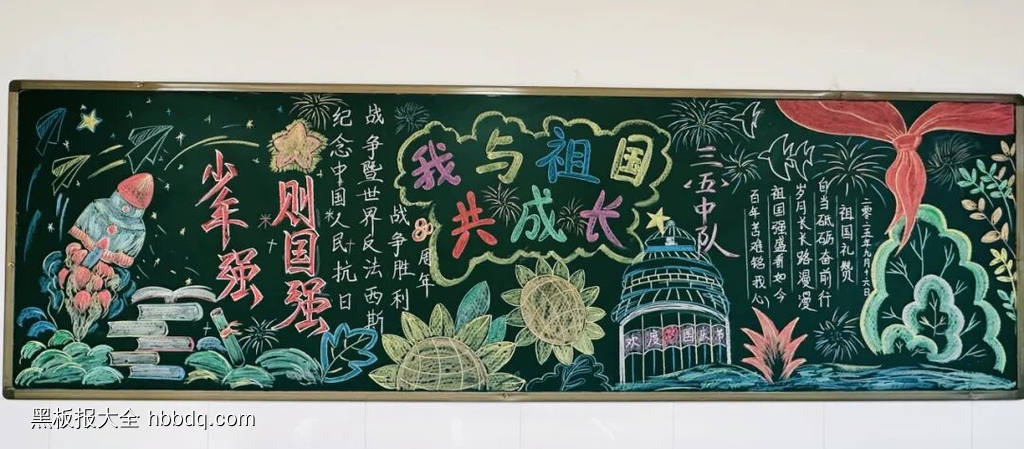 少年强
则国强
纪念中国人民抗日
战争暨世界反法西斯
战争胜利
80周年
我与祖国
共成长
三(五)中队
欢度国庆节
二零二五年九月十六日
祖国礼赞
自当砥砺奋前行
岁月长长路漫漫
祖国强盛看如今
百年苦难铭我心
黑板报大全 hbbdq.com